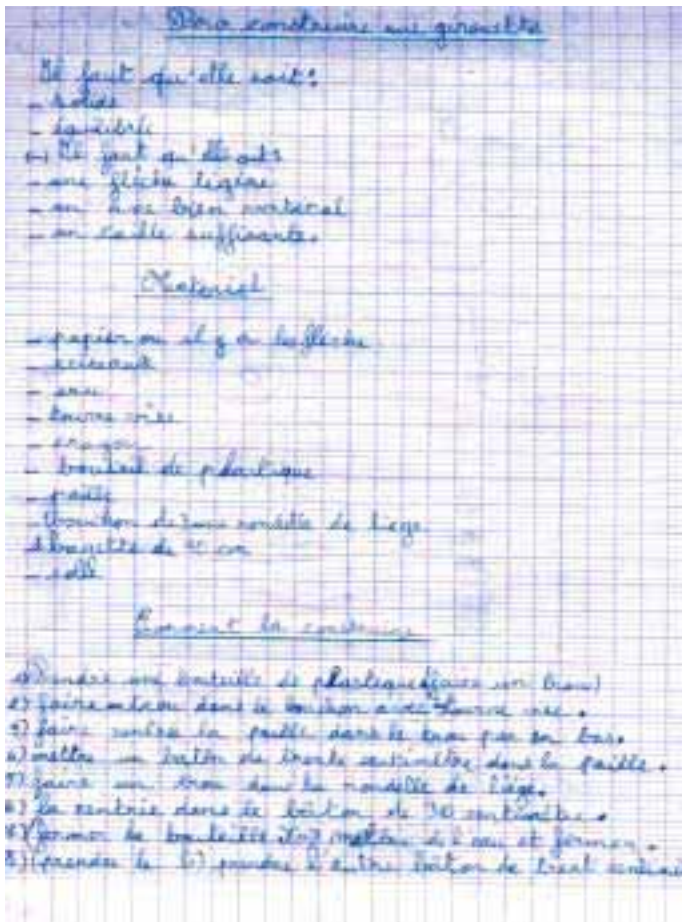 Pour construire une girouette
Il faut qu'elle soit :
- solide
- équilibrée
Il faut
- une flèche légère
- un bien
- un taille suffisante.
Materiel
- papier ou il y a la flèche
- ciseaux
- eau
- tourne vis
- crayon
- de plastique
- paille
- bouchon rondelle de liege
bagette de cm
Comment la construire
1) une bouteille de plastique (faire un trou)
2) faire un trou dans le bouchon avec tourne vis.
3) faire rentre la paille dans le trou par en bas.
4) mettre un batôn de trente centimètre dans la paille.
5) faire un trou dans la rondelle de liège.
6) la rentrée dans le bâton de 30
la bouteille mettre de l'eau et fermer.
(prendre le prendre l'autre bâton de trent